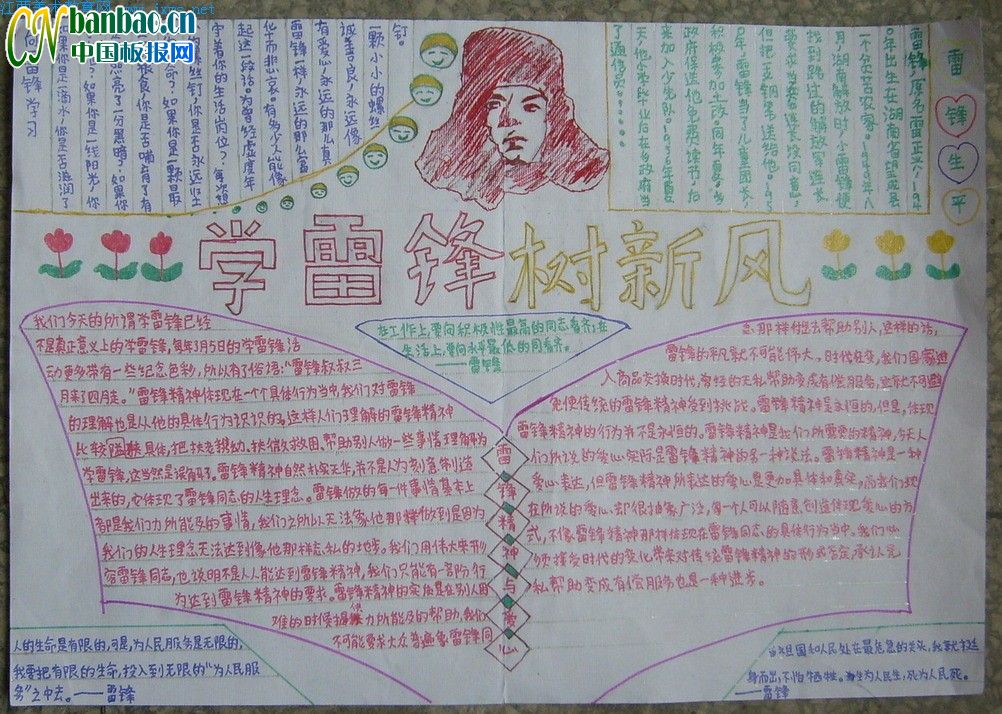 江西美术信息网 www.jxms.net
CN banbao.cn
中国板报网
向雷锋学习
如果你是一滴水,你是否滋润了
如果你是一线阳光,你
照亮了一分黑暗?如果
粮食,你是否哺育了有
命?如果你是一颗最
螺丝钉,你是否永远
守着你的生活岗位?每次想
起这段话,为曾经虚度年
华而悲哀。有多少人能像
雷锋一样永远的那么富
有爱心,永远的那么真
诚善良,永远像
一颗小小的螺丝
钉。
雷锋生平
雷锋,原名雷正兴,194
0年出生在湖南省望城县
一个贫苦农家。1949年八
月,湖南解放时,小雷锋便
找到路过的解放军连长
要求当兵。连长没同意,
但把一支钢笔送给他。195
0年,雷锋当了儿童团长,
积极参加土改。同年夏,乡
政府保送他免费读书,后
来加入少先队。1956年夏
天,他小学毕业后在乡政府当
了通信员。……
学雷锋树新风
在工作上,要向积极性最高的同志看齐,在
生活上,要向水平最低的同看齐。
——雷锋
我们今天的所谓学雷锋已经
不是真正意义上的学雷锋,每年3月5日的学雷锋活
动更多带有一些纪念色彩,所以有了俗语:“雷锋叔叔三
月来了四月走。”雷锋精神体现在一个个具体行为当中,我们对雷锋
的理解也是从他的具体行为认识的,这样人们理解的雷锋精神
比较具体,把扶老携幼、扶贫救困、帮助别人做一些事情理解为
学雷锋,这当然是误解了。雷锋精神自然朴实无华,并不是人为刻意制造
出来的,它体现了雷锋同志的人生理念。雷锋做的每一件事情基本上
都是我们力所能及的事情,我们之所以无法象他那样做到是因为
我们的人生理念无法达到像他那样忘私的地步。我们用伟大来形
容雷锋同志,也说明不是人人能达到雷锋精神,我们只能有一部分行
为达到雷锋精神的要求。雷锋精神的实质是在别人困
难的时候提供力所能及的帮助,我们
不可能要求大众普遍象雷锋同
雷锋精神与爱心
志那样做去帮助别人,这样的话,
雷锋的形象就不可能伟大。时代在变,我们国家进
入商品交换时代,曾经的无私帮助变成有偿服务,这就不可避
免使传统的雷锋精神受到挑战。雷锋精神是永恒的,但是,体现
雷锋精神的行为并不是永恒的。雷锋精神是我们所需要的精神,今天人
们所说的爱心实际是雷锋精神的另一种说法。雷锋精神是一种
爱心表达,但雷锋精神所表达的爱心是更加具体和真实,而我们现
在所说的爱心,却很抽象广泛,每一个人可以随意创造体现爱心的方
式,不像雷锋精神那样体现在雷锋同志的具体行为当中。我们必
须接受时代的变化带来对传统雷锋精神的形式否定,承认无
私帮助变成有偿服务也是一种进步。
人的生命是有限的,可是,为人民服务是无限的,
我要把有限的生命,投入到无限的“为人民服
务”之中去。——雷锋
当祖国和人民处在最危急的关头,我就挺
身而出,不怕牺牲。生为人民生,死为人民死。
——雷锋